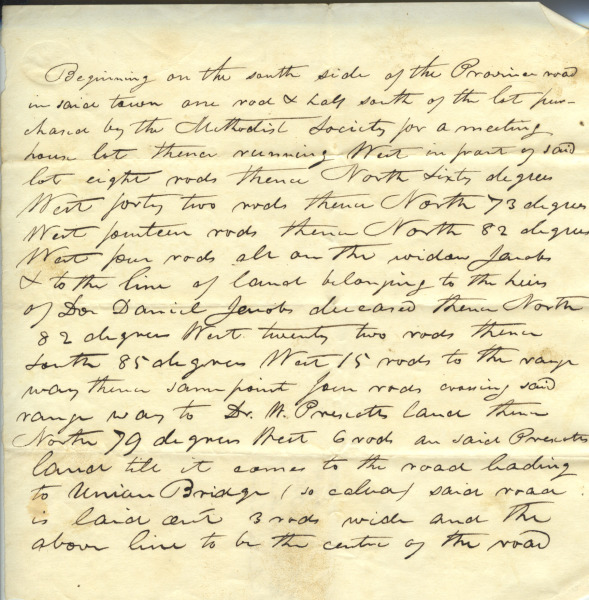 Beginning on the south side of the Province road
in said town one rod & half south of the lot pur-
chased by the Methodist Society for a meeting
house lot thence running West in front of said
lot eight rods thence North sixty degrees
West forty two rods thence North 73 degrees
West fourteen rods thence North 82 degrees
West four rods all on the widow Jacobs
& to the line of land belonging to the heirs
of Dea Daniel Jacobs deceased thence North
82 degrees West twenty two rods thence
South 85 degrees West 15 rods to the range
way thence same point four rods crossing said
range way to Dr. W. Prescotts land thence
North 79 degrees West 6 rods on said Prescotts
land till it comes to the road leading
to Union Bridge (so called) said road
is laid out 3 rods wide and the
above line to be the centre of the road